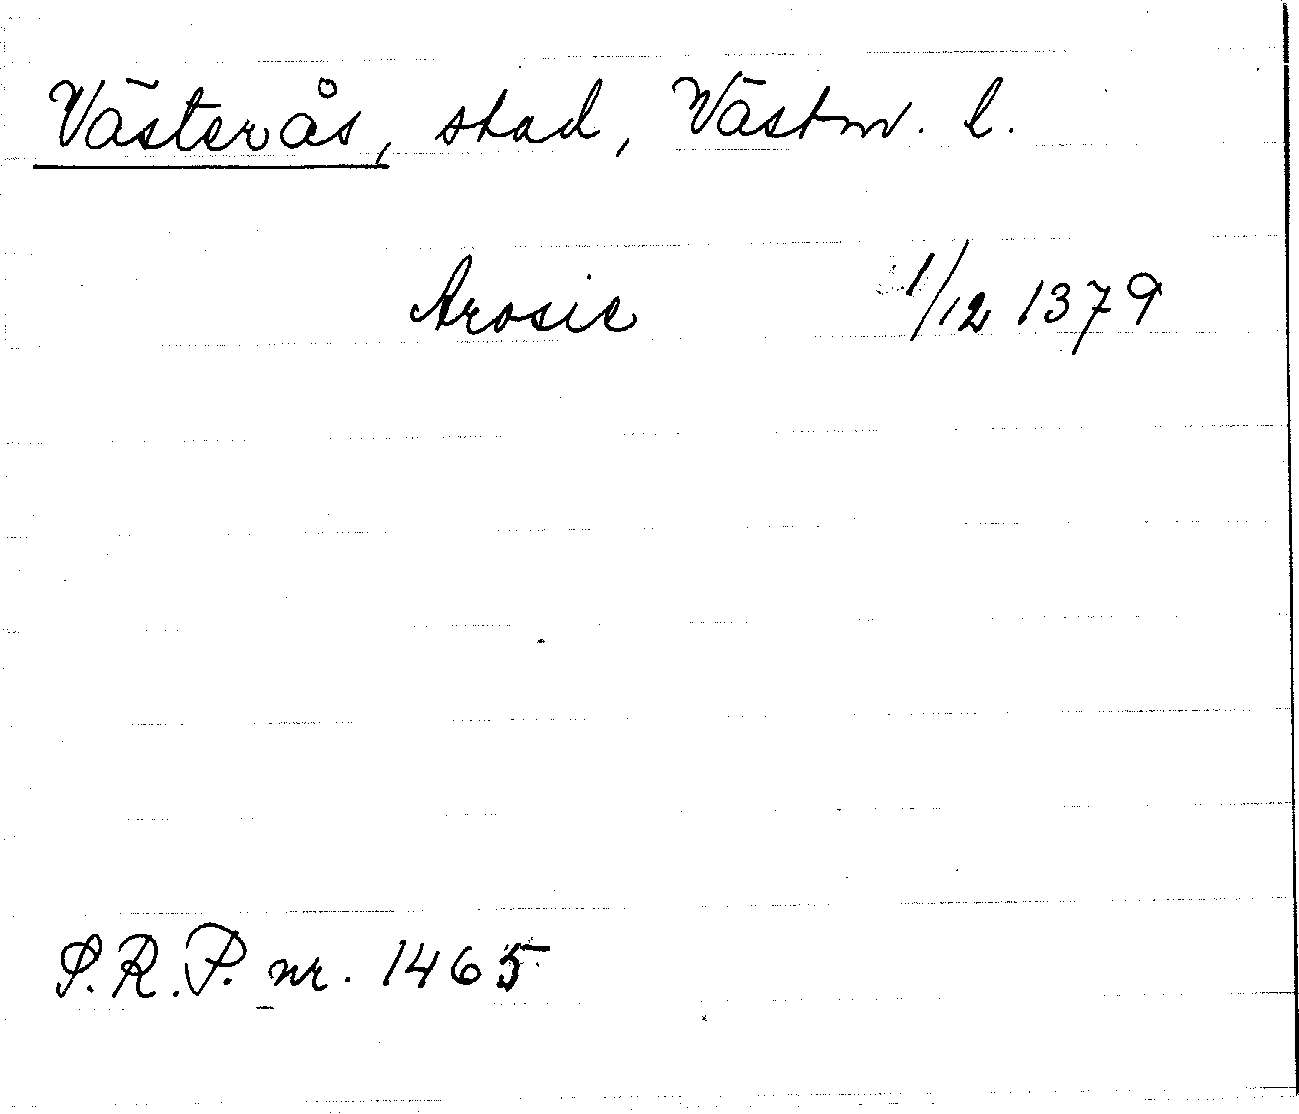 Västerås, stad, Västm. l.
Arosie 1/12 1379
S.R.P. nr. 1465